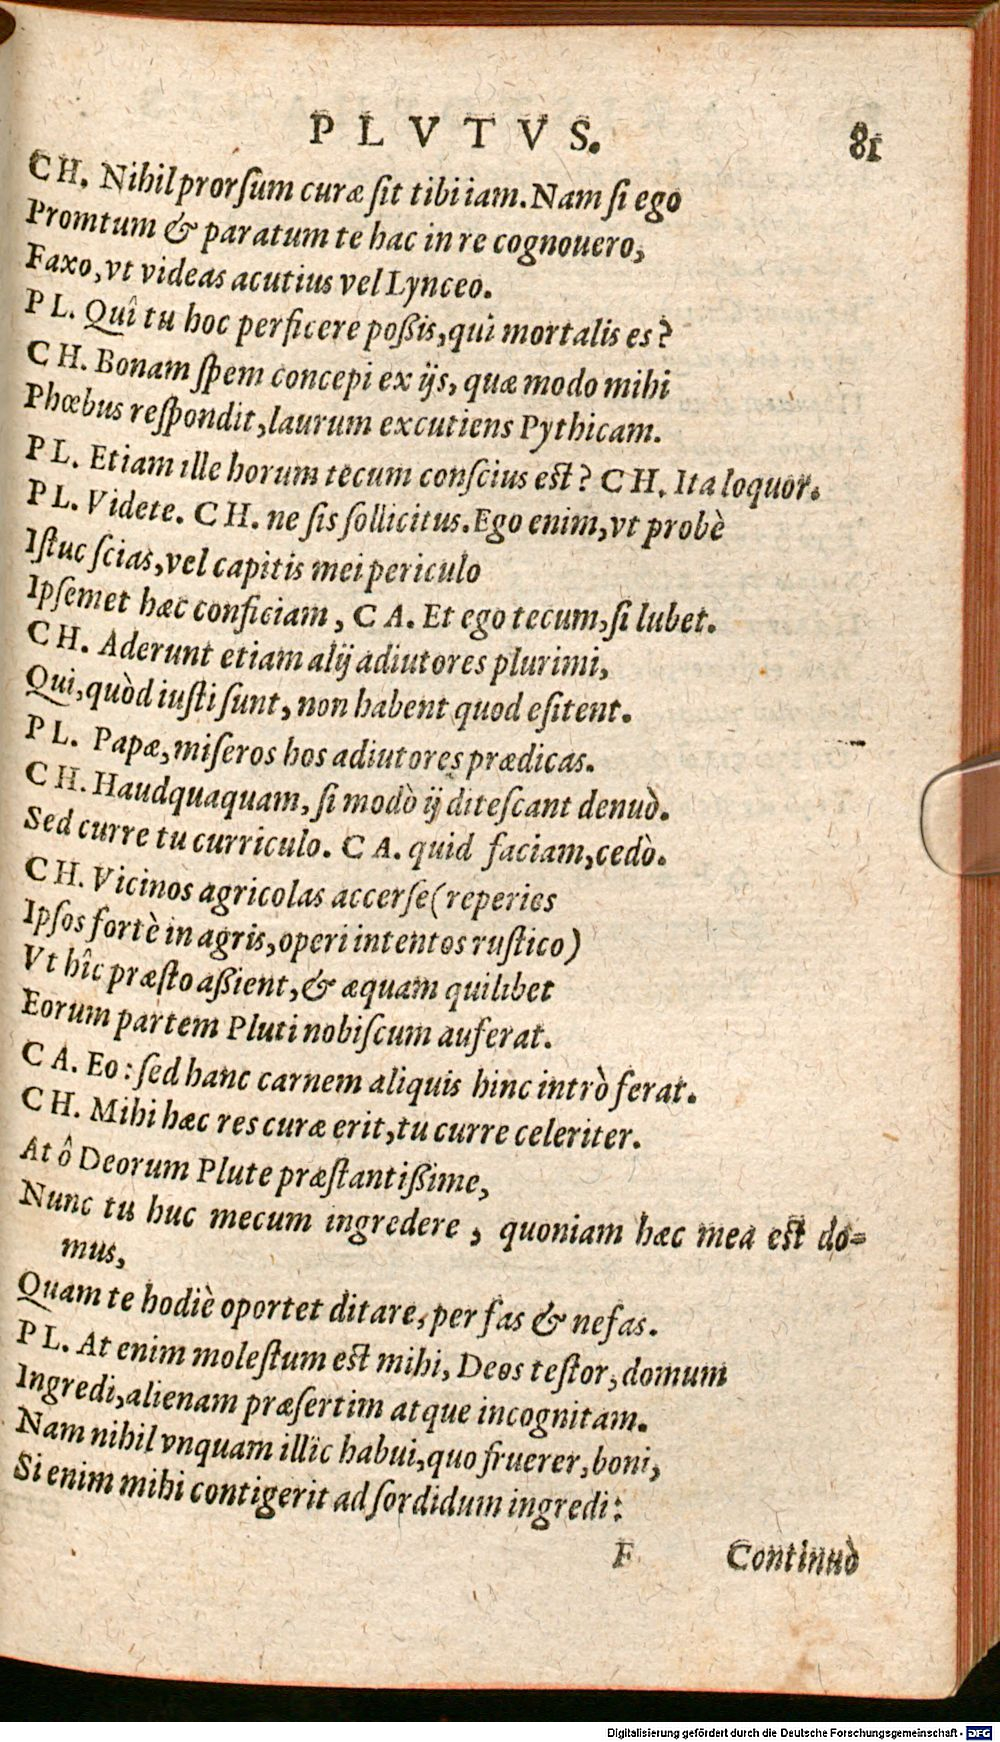 PLVTVS. 81
CH. Nihil prorſum curæ ſit tibi iam. Nam ſi ego
Promtum & paratum te hac in re cognouero,
Faxo, vt videas acutius vel Lynceo.
PL. Quî tu hoc perficere poßis, qui mortalis es?
CH. Bonam ſpem concepi ex ijs, quæ modo mihi
Phœbus reſpondit, laurum excutiens Pythicam.
PL. Etiam ille horum tecum conſcius eſt? CH. Ita loquor.
PL. Videte. CH. ne ſis ſollicitus. Ego enim, vt probè
Iſtuc ſcias, vel capitis mei periculo
Ipſemet hæc conficiam, CA. Et ego tecum, ſi lubet.
CH. Aderunt etiam alij adiutores plurimi,
Qui, quòd iuſti ſunt, non habent quod eſitent.
PL. Papæ, miſeros hos adiutores prædicas.
CH. Haudquaquam, ſi modò ij diteſcant denuò.
Sed curre tu curriculo. CA. quid faciam, cedò.
CH. Vicinos agricolas accerſe (reperies
Ipſos fortè in agris, operi intentos ruſtico)
Vt hîc præſto aßient, & æquam quilibet
Eorum partem Pluti nobiſcum auferat.
CA. Eo: ſed hanc carnem aliquis hinc intrò ferat.
CH. Mihi hæc res curæ erit, tu curre celeriter.
At ô Deorum Plute præſtantißime,
Nunc tu huc mecum ingredere, quoniam hæc mea eſt do-
mus,
Quam te hodiè oportet ditare, per fas & nefas.
PL. At enim moleſtum eſt mihi, Deos teſtor, domum
Ingredi, alienam præſertim atque incognitam.
Nam nihil vnquam illîc habui, quo fruerer, boni,
Si enim mihi contigerit ad ſordidum ingredi:
F Continuò
Digitalisierung gefördert durch die Deutsche Forschungsgemeinschaft - DFG